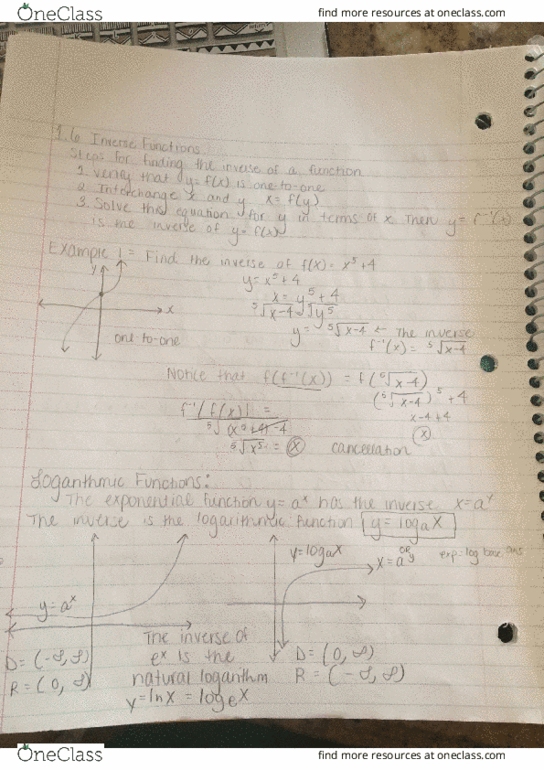 OneClass
find more resources at oneclass.com
1.6 Inverse Functions
Steps for finding the inverse of a function
1. Verify that y=f(x) is one-to-one
2. Interchange x and y x=f(y)
3. Solve this equation for y in terms of x. Then y=f⁻¹(x)
is the inverse of y=f(x)
Example 1= Find the inverse of f(x)=x⁵+4
y=x⁵+4
x=y⁵+4
⁵√x-4 = √y⁵
y=⁵√x-4 ← The inverse
f⁻¹(x)=⁵√x-4
y
x
one-to-one
Notice that f(f⁻¹(x)) = f(⁵√x-4)
(⁵√x-4)⁵+4
x-4+4
x
f⁻¹(f(x)) =
⁵√(x⁵+4)-4
⁵√x⁵ = x cancellation
Logarithmic Functions:
The exponential function y=aˣ has the inverse x=aʸ
The inverse is the logarithmic function y=logₐx
y=aˣ
D=(-∞,∞)
R=(0,∞)
y=logₐx
OR
x=aʸ
exp=log base ans
D=(0,∞)
R=(-∞,∞)
The inverse of
eˣ is the
natural logarithm
y=lnx=logₑx
OneClass
find more resources at oneclass.com